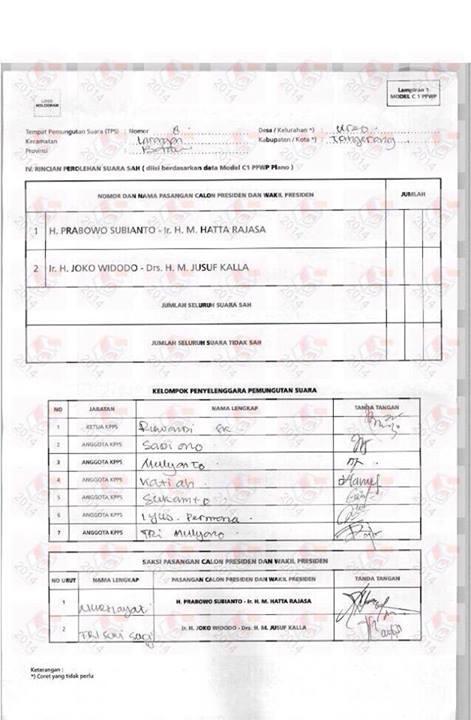 LOGO
HOLOGRAM
Lampiran 1
MODEL C 1 PPWP
Tempat Pemungutan Suara (TPS) : Nomor 8 Desa / Kelurahan *) :
Kecamatan : Kabupaten / Kota *) : Tangerang
Provinsi :
IV. RINCIAN PEROLEHAN SUARA SAH ( diisi berdasarkan data Model C1 PPWP Plano )
NOMOR DAN NAMA PASANGAN CALON PRESIDEN DAN WAKIL PRESIDEN JUMLAH
1 H. PRABOWO SUBIANTO - Ir. H. M. HATTA RAJASA
2 Ir. H. JOKO WIDODO - Drs. H. M. JUSUF KALLA
JUMLAH SELURUH SUARA SAH
JUMLAH SELURUH SUARA TIDAK SAH
KELOMPOK PENYELENGGARA PEMUNGUTAN SUARA
NO JABATAN NAMA LENGKAP TANDA TANGAN
1 KETUA KPPS
2 ANGGOTA KPPS
3 ANGGOTA KPPS Mulyanto
4 ANGGOTA KPPS
5 ANGGOTA KPPS Sukamto
6 ANGGOTA KPPS Permana
7 ANGGOTA KPPS TRI Mulyono
SAKSI PASANGAN CALON PRESIDEN DAN WAKIL PRESIDEN
NO URUT NAMA LENGKAP PASANGAN CALON PRESIDEN DAN WAKIL PRESIDEN TANDA TANGAN
1 NURHIDAYAT H. PRABOWO SUBIANTO - Ir. H. M. HATTA RAJASA
2 Ir. H. JOKO WIDODO - Drs. H. M. JUSUF KALLA
Keterangan :
*) Coret yang tidak perlu